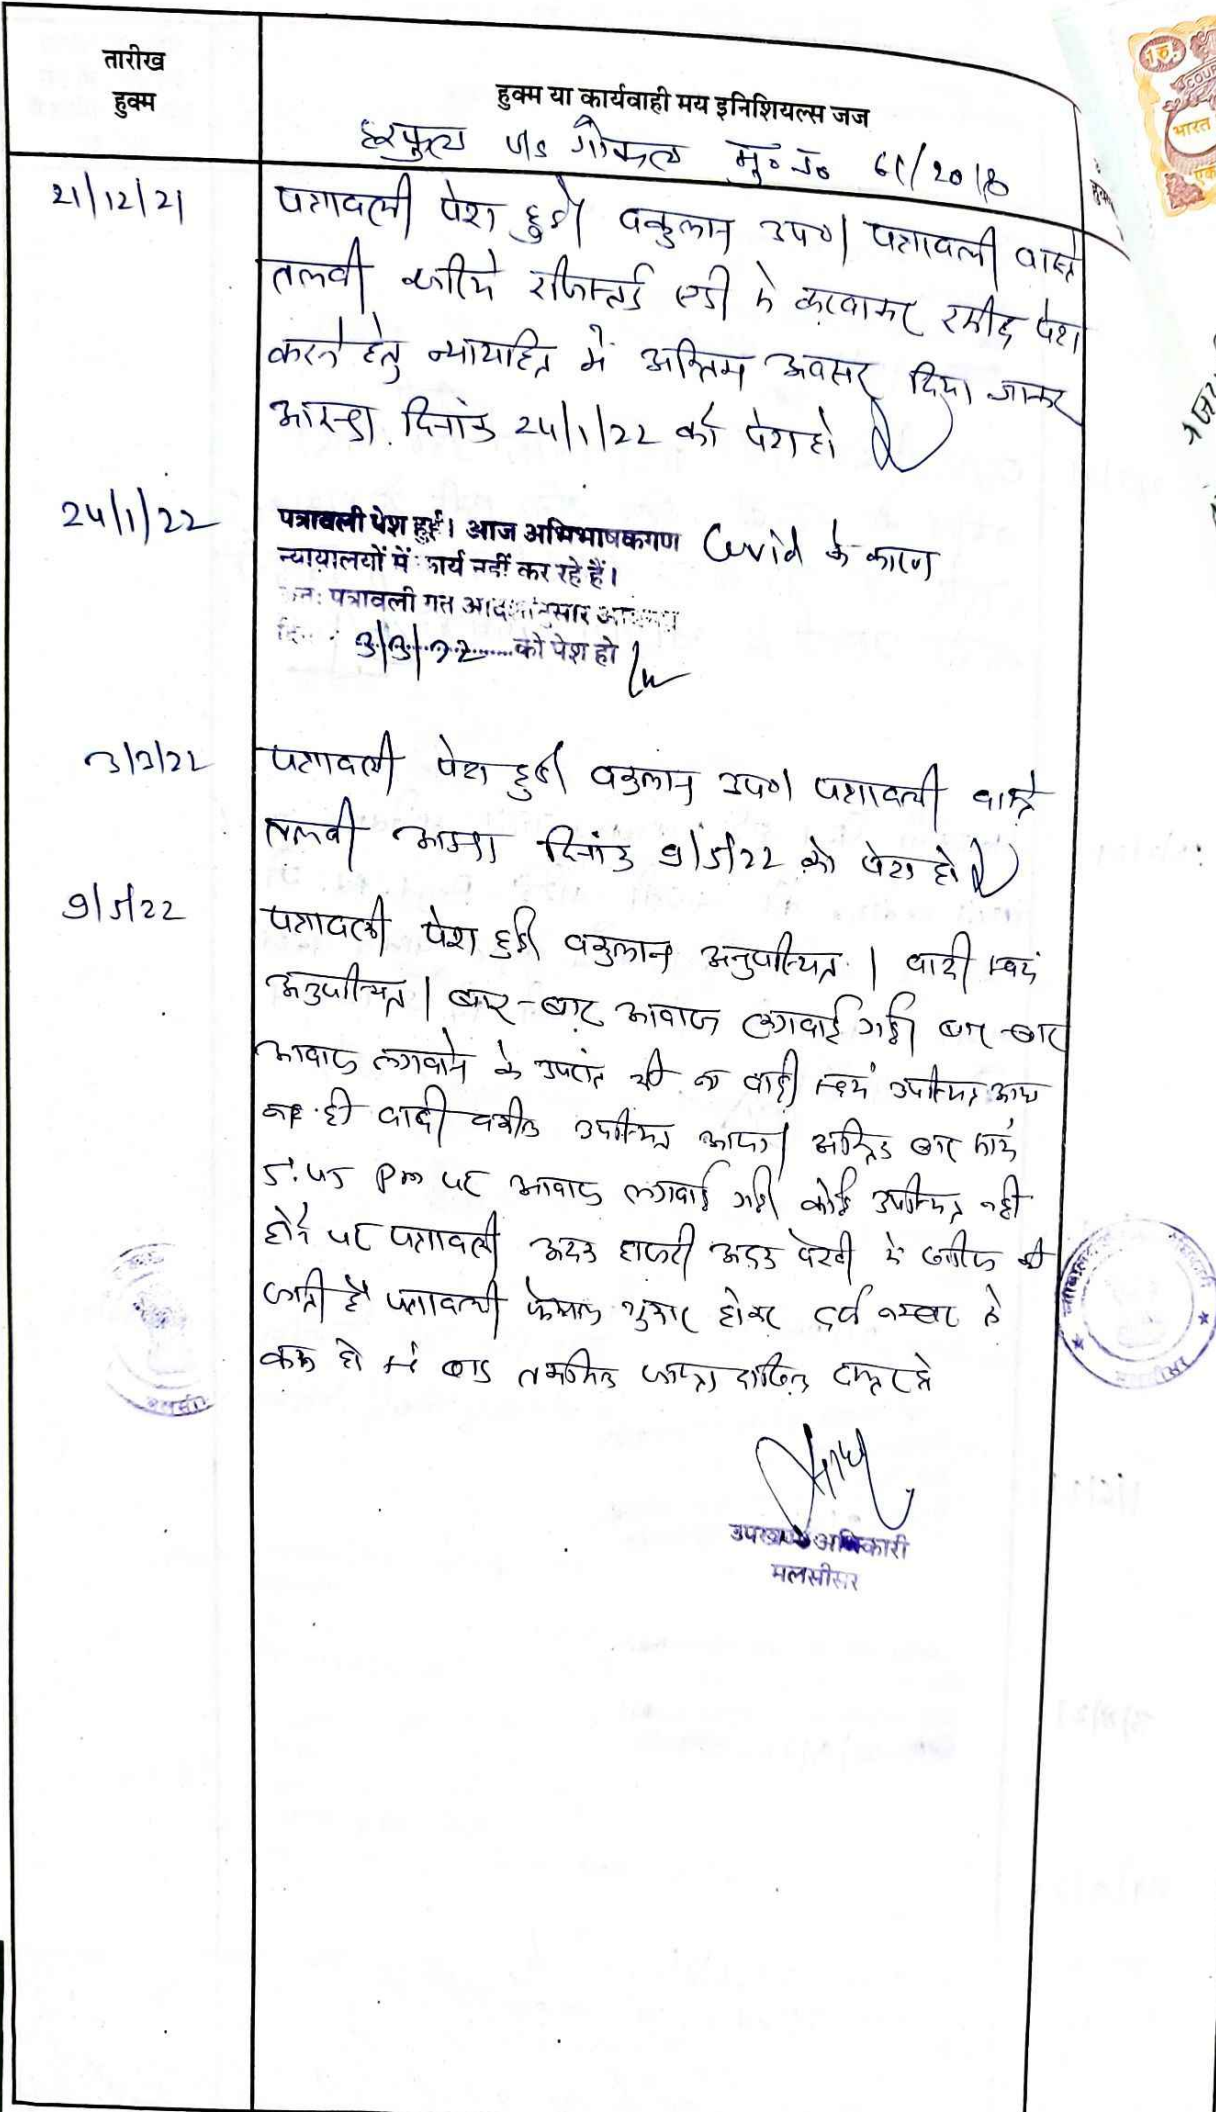 तारीख
हुक्म
हुक्म या कार्यवाही मय इनिशियल्स जज
हरफुल v/s गोकल मु० न० 61/2018
21/12/21 पत्रावली पेश हुई। वकुलान उप०। पत्रावली वास्ते
तलवी जरिये रजिस्टर्ड एडी के करवाकर रसीद पेश
करने हेतु न्यायहित में अन्तिम अवसर दिया जाकर
आइन्दा दिनांक 24/1/22 को पेश हो
24/1/22 पत्रावली पेश हुई। आज अभिभाषकगण Covid के कारण
न्यायालयों में कार्य नहीं कर रहे हैं।
अतः पत्रावली गत आदेशानुसार
3/3/22 को पेश हो
3/3/22 पत्रावली पेश हुई। वकुलान उप०। पत्रावली वास्ते
तलवी दिनांक 9/5/22 को पेश हो
9/5/22 पत्रावली पेश हुई। वकुलान अनुपस्थित। वादी स्वयं
अनुपस्थित। बार-बार आवाज लगवाई गई। बार-बार
आवाज लगवाने के उपरांत भी ना वादी स्वयं उपस्थित आया
ना ही वादी वकील उपस्थित आया। बार
5:45 Pm पर आवाज लगवाई गई। कोई उपस्थित नही
होने पर पत्रावली अदम हाजरी अदम पैरवी में खारीज की
जाती है। पत्रावली फैसल शुमार होकर दर्ज नम्बर से
कम हो बाद तकमील दाखिल दफ्तर हो
उपखण्ड अधिकारी
मलसीसर
भारत